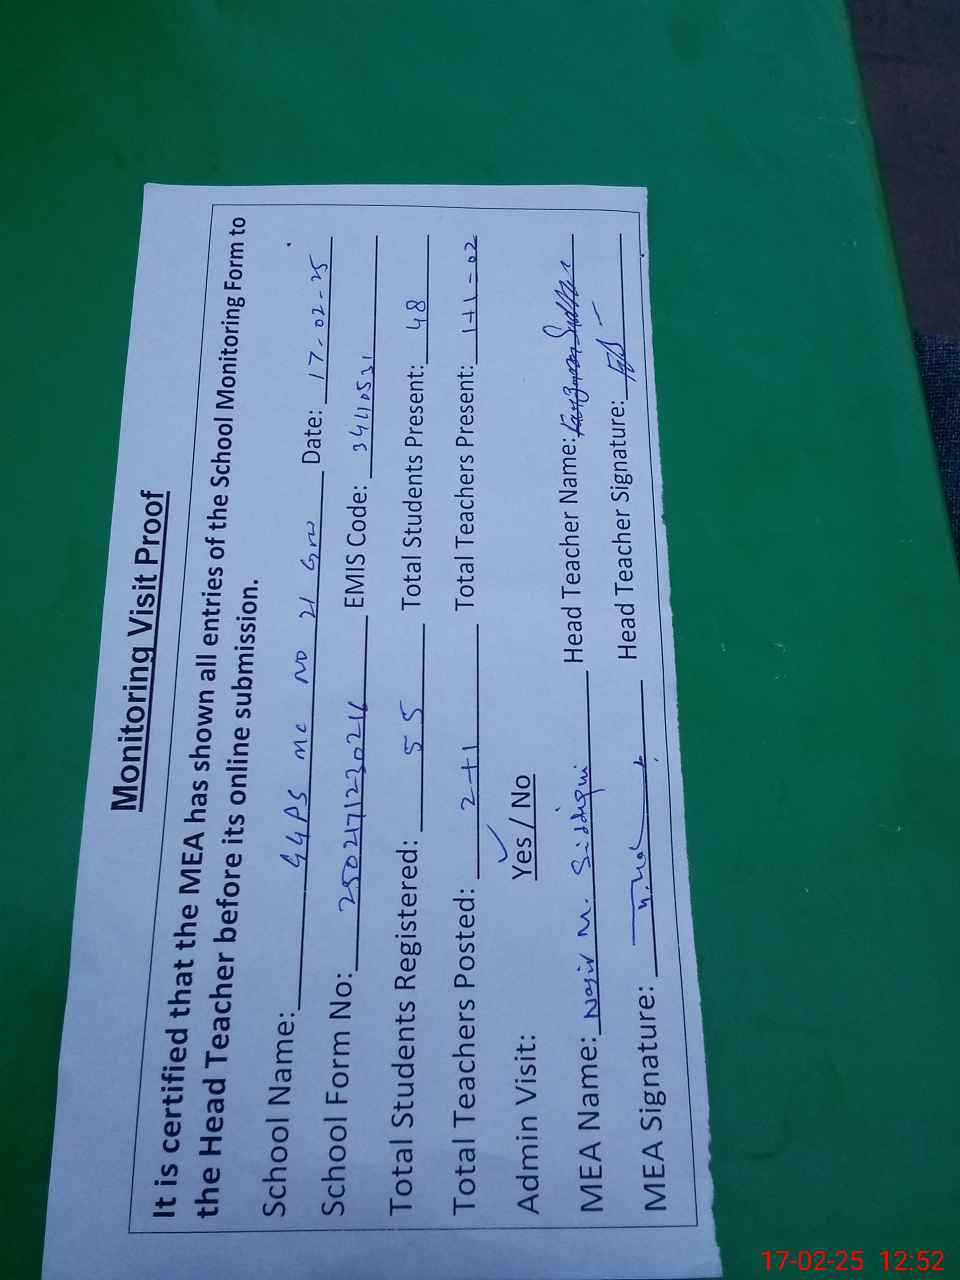 Monitoring Visit Proof
It is certified that the MEA has shown all entries of the School Monitoring Form to
the Head Teacher before its online submission.
School Name: GGPS MC NO 21 Date: 17-02-25
School Form No: 2502171230216 EMIS Code: 34410531
Total Students Registered: 55 Total Students Present: 48
Total Teachers Posted: 2+1 Total Teachers Present: 1+1-02
Admin Visit: Yes / No
MEA Name: Nasir M. Siddiqui Head Teacher Name:
MEA Signature: Head Teacher Signature:
17-02-25 12:52